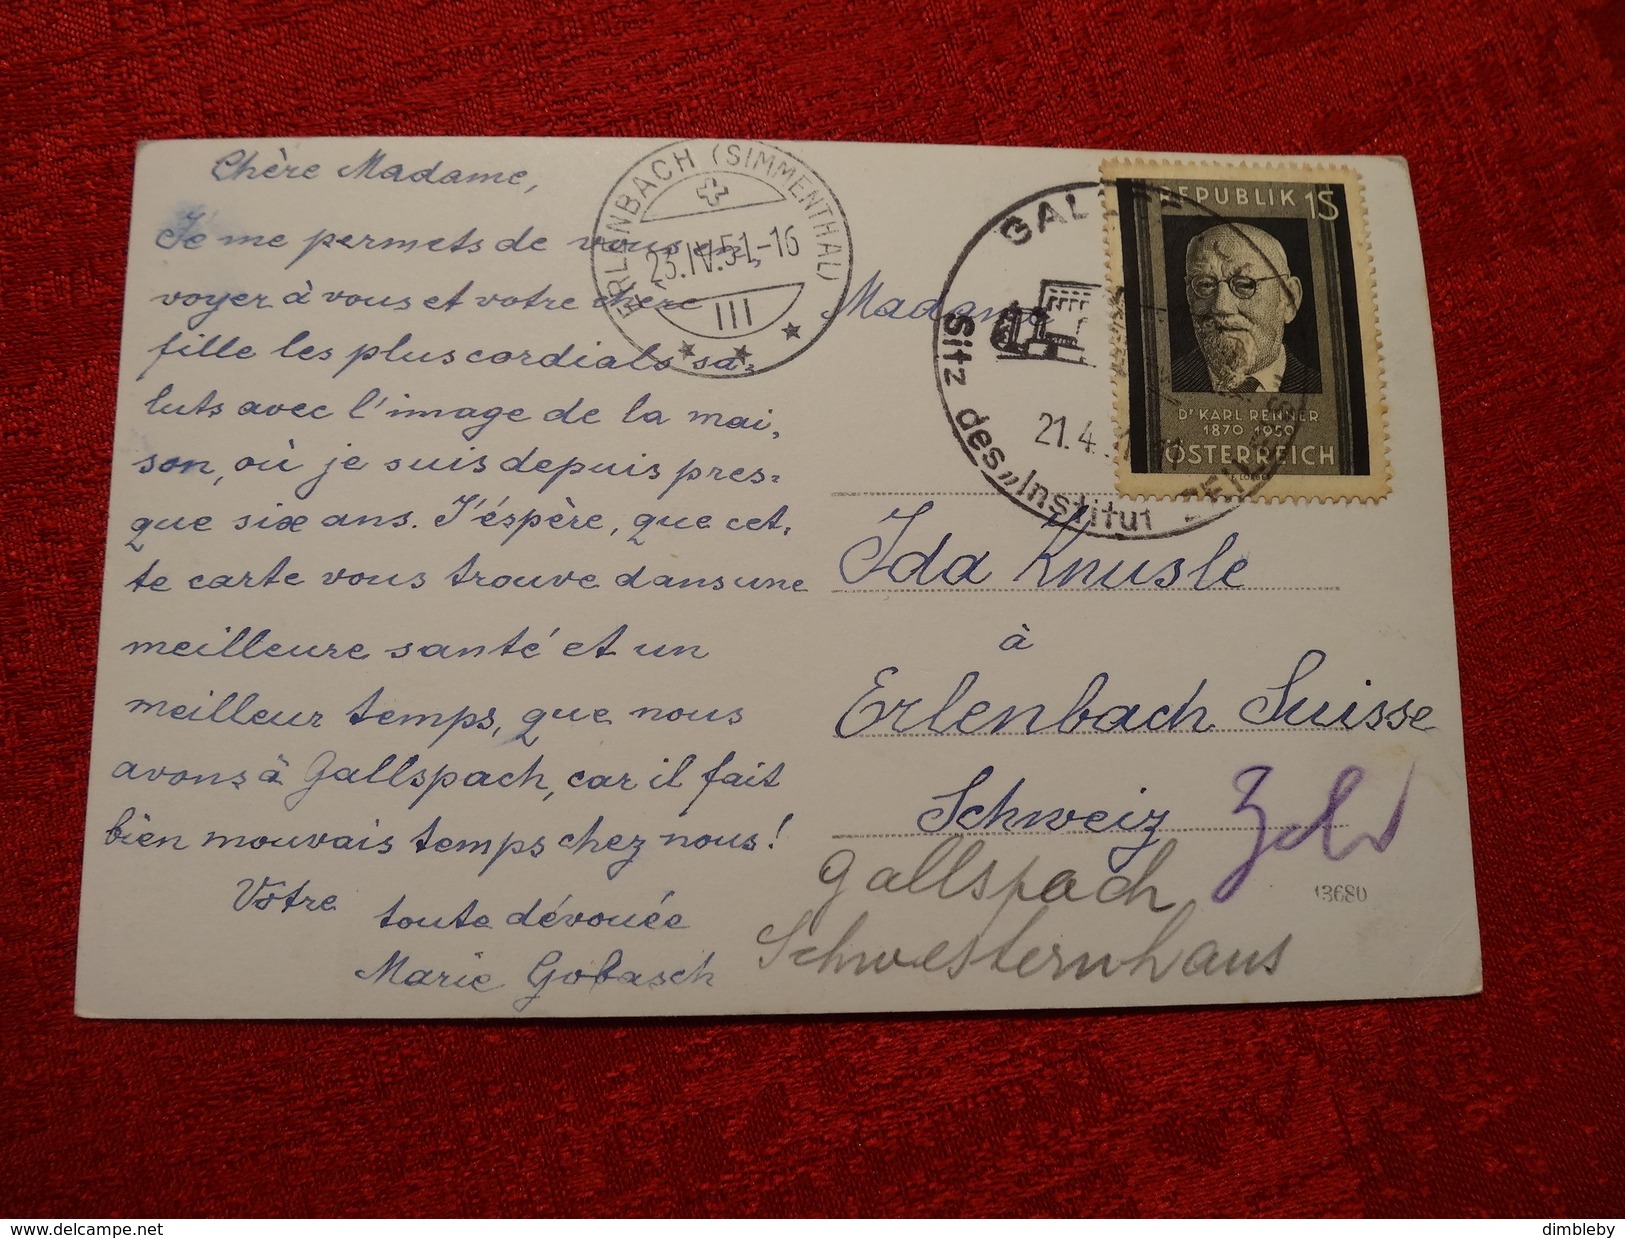 Chère Madame,
Je me permets de vous en,
voyer à vous et votre chère
fille les plus cordials sa,
luts avec l'image de la mai,
son, où je suis depuis pres=
que six ans. J'éspère, que cet,
te carte vous trouve dans une
meilleure santé et un
meilleur temps, que nous
avons à Gallspach, car il fait
bien mouvais temps chez nous!
Votre
toute dévouée
Marie Gobasch
ERLENBACH (SIMMENTHAL)
23.IV.51.-16
III
Sitz des „Institut
21.4.
REPUBLIK 1S
Dr KARL RENNER
1870 1950
ÖSTERREICH
Madame
Ida Knusle
à
Erlenbach Suisse
Schweiz
Gallspach
Schwesternhaus
13680
delcampe.net
dimbleby